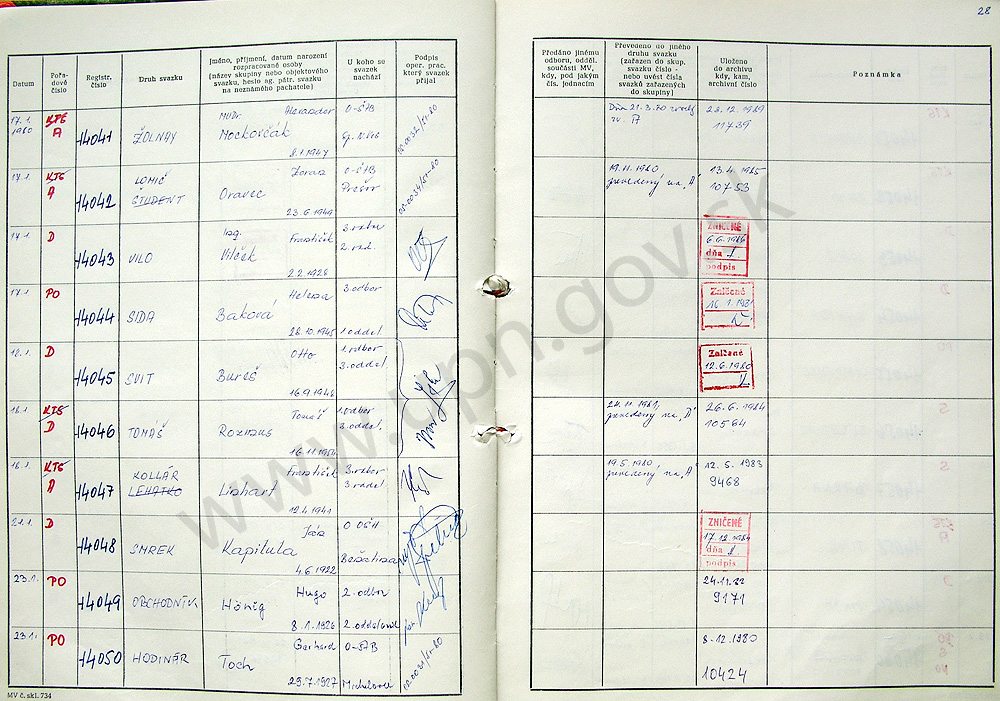 28
Datum
Pořadové číslo
Registr. číslo
Druh svazku
Jméno, příjmení, datum narození rozpracované osoby (název skupiny nebo objektového svazku, heslo ag. pátr. svazku na neznámého pachatele)
U koho se svazek nachází
Podpis oper. prac. který svazek přijal
Předáno jinému odboru, odděl. součásti MV, kdy, pod jakým čís. jednacím
Převedeno do jiného druhu svazku (zařazen do skup. svazku číslo - nebo uvést čísla svazků zařazených do skupiny)
Uloženo do archivu kdy, kam, archivní číslo
Poznámka
17.1. 1980 KTS A 14041 ŽOLNAY
MUDr. Alexander
Mockovčák
8.1.1947
O-ŠtB
23.12.1989
11739
17.1. KTS A 14042
ŠTUDENT
Zoran
Oravec
23.6.1949
O-ŠtB
Prešov
19.11.1980
prevedený na „A"
13.4.1985
10753
17.1. D 14043 VILO
Ing. František
Vilček
2.2.1926
ZNIČENÉ
6.6.1986
dňa
podpis
17.1. PO 14044 SIDA
Helena
Baková
28.10.1945
3.odbor
1.oddel
Zničené
16.1.1981
18.1. D 14045 SVIT
Otto
Bureš
16.9.1946
1.odbor
3.oddel
Zničené
12.6.1980
18.1. KTS D 14046 TOMÁŠ
Tomáš
Rozmus
1.odbor
3.oddel.
24.11.1981,
prevedený na „A"
26.6.1984
10564
KTS A 14047
KOLLÁR
LEHATKO
František
Linhart
12.4.1941
19.5.1980
prevedený na „A"
12.5.1983
9468
21.1. D 14048 SMREK
Ján
Kapitula
4.6.1922
ZNIČENÉ
17.12.1984
dňa
podpis
23.1. PO 14049 OBCHODNÍK
Hugo
Hönig
8.1.1926
2.odbor
2.oddelenie
24.11.82
9171
23.1. PO 14050 HODINÁR
Gerhard
Toch
29.7.1927
O-ŠtB
Michalovce
8.12.1980
10424
MV č. skl. 734
www.upn.gov.sk